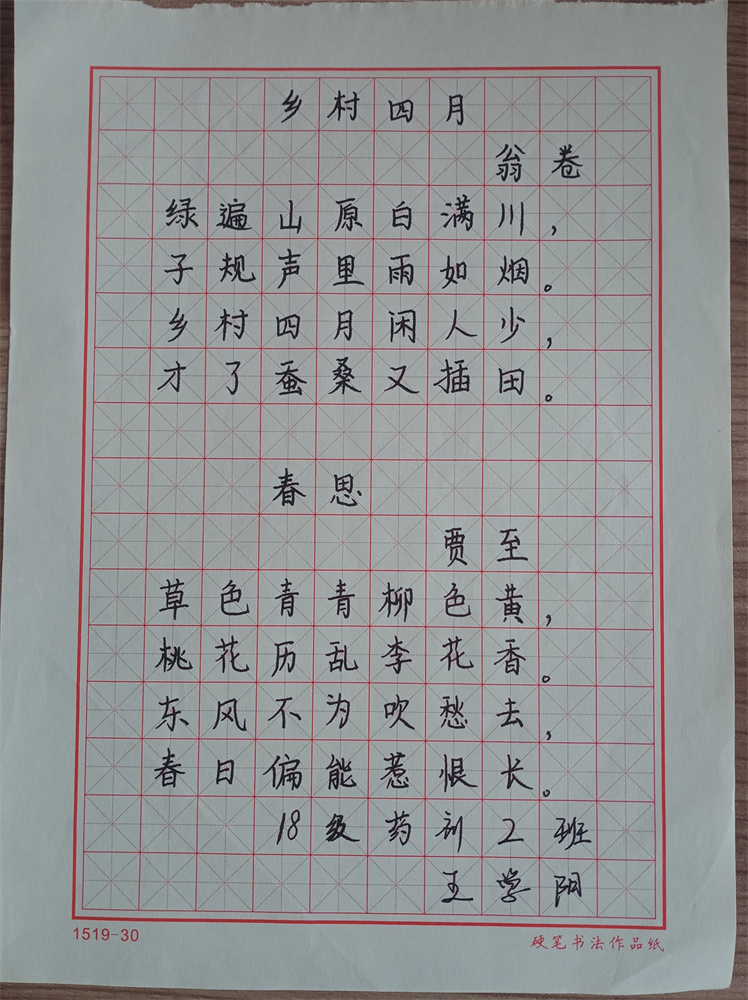 乡村四月
翁卷
绿遍山原白满川，
子规声里雨如烟。
乡村四月闲人少，
才了蚕桑又插田。
春思
贾至
草色青青柳色黄，
桃花历乱李花香。
东风不为吹愁去，
春日偏能惹恨长。
18级药剂2班
王学阳
1519-30
硬笔书法作品纸